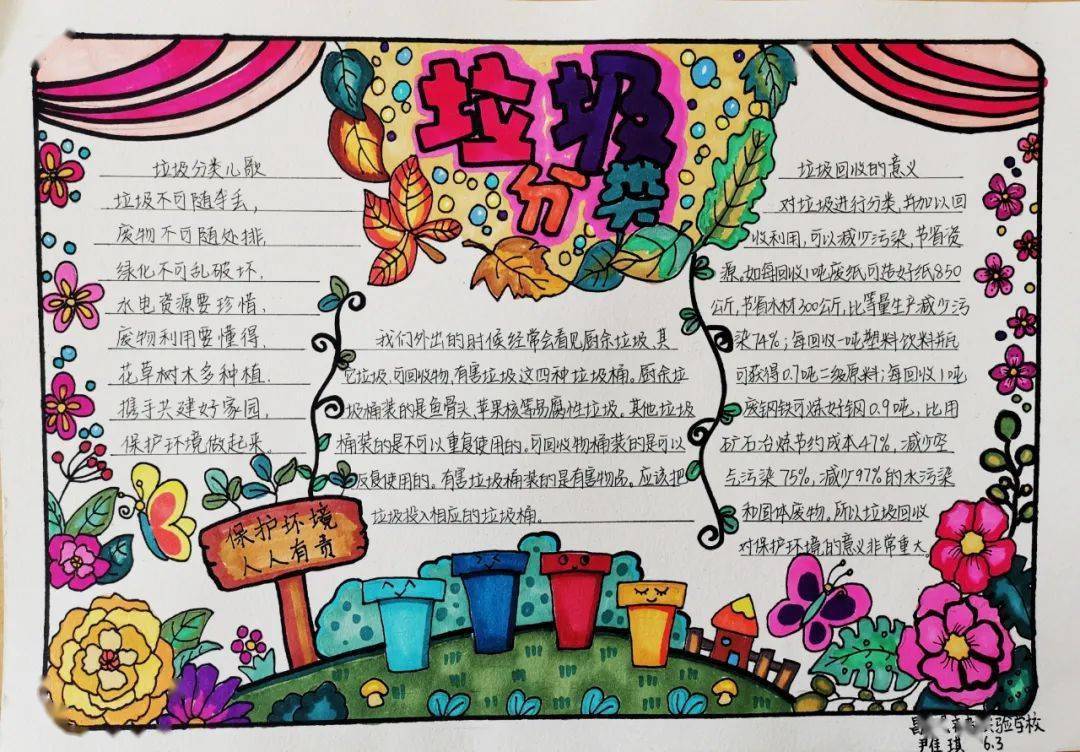 垃圾
分类
垃圾分类儿歌
垃圾不可随手丢,
废物不可随处排,
绿化不可乱破坏,
水电资源要珍惜,
废物利用要懂得,
花草树木多种植,
携手共建好家园,
保护环境做起来。
我们外出的时候经常会看见厨余垃圾、其
它垃圾、可回收物、有害垃圾这四种垃圾桶。厨余垃
圾桶装的是鱼骨头、苹果核等易腐性垃圾。其他垃圾
桶装的是不可以重复使用的。可回收物桶装的是可以
反复使用的。有害垃圾桶装的是有害物品。应该把
垃圾投入相应的垃圾桶。
垃圾回收的意义
对垃圾进行分类,并加以回
收利用,可以减少污染,节省资
源。如每回收1吨废纸可造好纸850
公斤,节省木材300公斤,比等量生产减少污
染74%;每回收一吨塑料饮料瓶
可获得0.7吨二级原料;每回收1吨
废钢铁可炼好钢0.9吨,比用
矿石冶炼节约成本47%,减少空
气污染75%,减少97%的水污染
和固体废物。所以垃圾回收
对保护环境的意义非常重大。
保护环境
人人有责
实验学校
琪 6.3